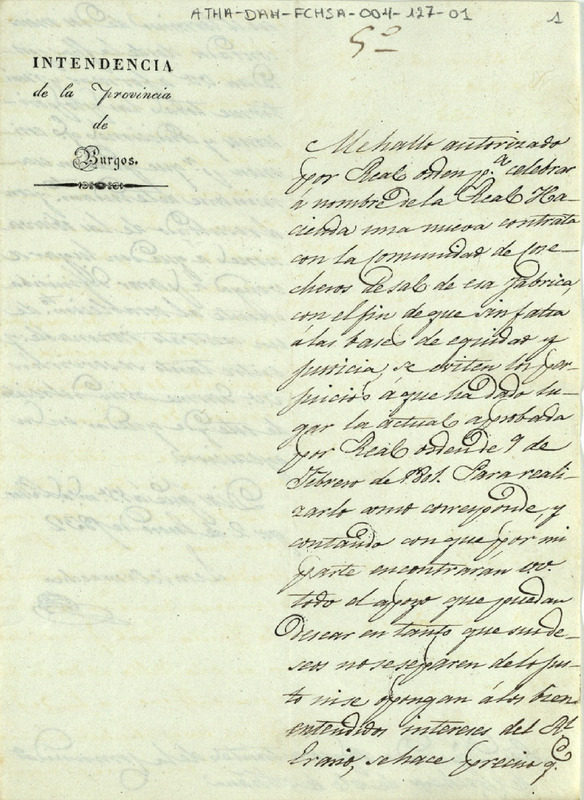 ATHA-DAH-FCHSA-004-127-01
1
INTENDENCIA
de la Provincia
de
Burgos.
Me hallo autorizado
por Real orden p.ª celebrar
a nombre de la Real Ha-
cienda una nueva contrata
con la Comunidad de Cose-
cheros de sal de esa fabrica,
con el fin de que sin faltar
á las bases de equidad y
justicia, se eviten los per-
juicios á que ha dado lu-
gar la actual aprobada
por Real orden de 9 de
Febrero de 1801. Para reali-
zarlo como corresponde, y
contando con que por mi
parte encontrarán
todo el apoyo que puedan
desear en tanto que sus de-
seos no se separen de lo jus-
to ni se opongan á los bien
entendidos intereses del Rl
Erario, se hace preciso q.e